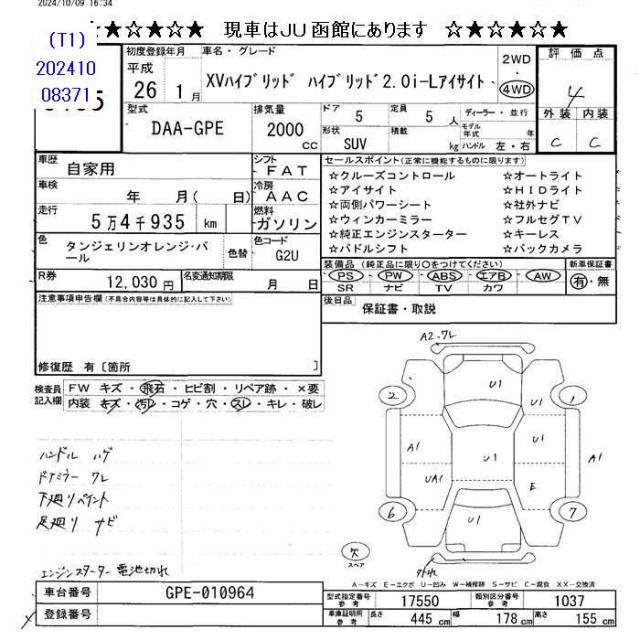 2024/10/09 16:34
★☆★☆★☆★ 現車はJU函館にあります ☆★☆★☆★
(T1)
202410
08371
初度登録年月
平成
26 1月
車名・グレード
XVハイブリッド ハイブリッド2.0i-Lアイサイト
2WD
4WD
評価点
4
外装 内装
C C
型式
DAA-GPE
排気量
2000
cc
ドア
5
定員
5 人
形状
SUV
積載
kg
ディーラー・並行
モデル年式 年
ハンドル 左・右
車歴
自家用
シフト
FAT
車検
年 月( 日)
冷房
AAC
走行
5万4千935 km
燃料
ガソリン
色
タンジェリンオレンジ・パール
色替
色コード
G2U
R券
12,030円
名変通知期限
月 日
セールスポイント(正常に機能するものに限ります)
☆クルーズコントロール ☆オートライト
☆アイサイト ☆HIDライト
☆両側パワーシート ☆社外ナビ
☆ウィンカーミラー ☆フルセグTV
☆純正エンジンスターター ☆キーレス
☆パドルシフト ☆バックカメラ
装備品(純正品に限り○をつけてください)
PS PW ABS エアB AW
SR ナビ TV カワ
新車保証書
有・無
後日品
保証書・取説
注意事項申告欄(不具合内容等は具体的に記入して下さい)
修復歴 有〔箇所 〕
検査員記入欄
FW キズ・飛石・ヒビ割・リペア跡・×要
内装 キズ・汚れ・コゲ・穴・スレ・キレ・破レ
ハンドル ハゲ
ドアミラー ワレ
下廻りペイント
足廻り サビ
エンジンスターター 電池切れ
A2.ワレ
U1
2
1
U1
U1
A1
A1
UA1
U1
E
6
7
U1
欠
スペア
A-キズ E-エクボ U-凹み W-補修跡 S-サビ C-腐食 XX-交換済
車台番号
GPE-010964
登録番号
型式指定番号
参考
17550
類別区分番号
参考
1037
車庫証明用
参考
長さ
445 cm
幅
178 cm
高さ
155 cm